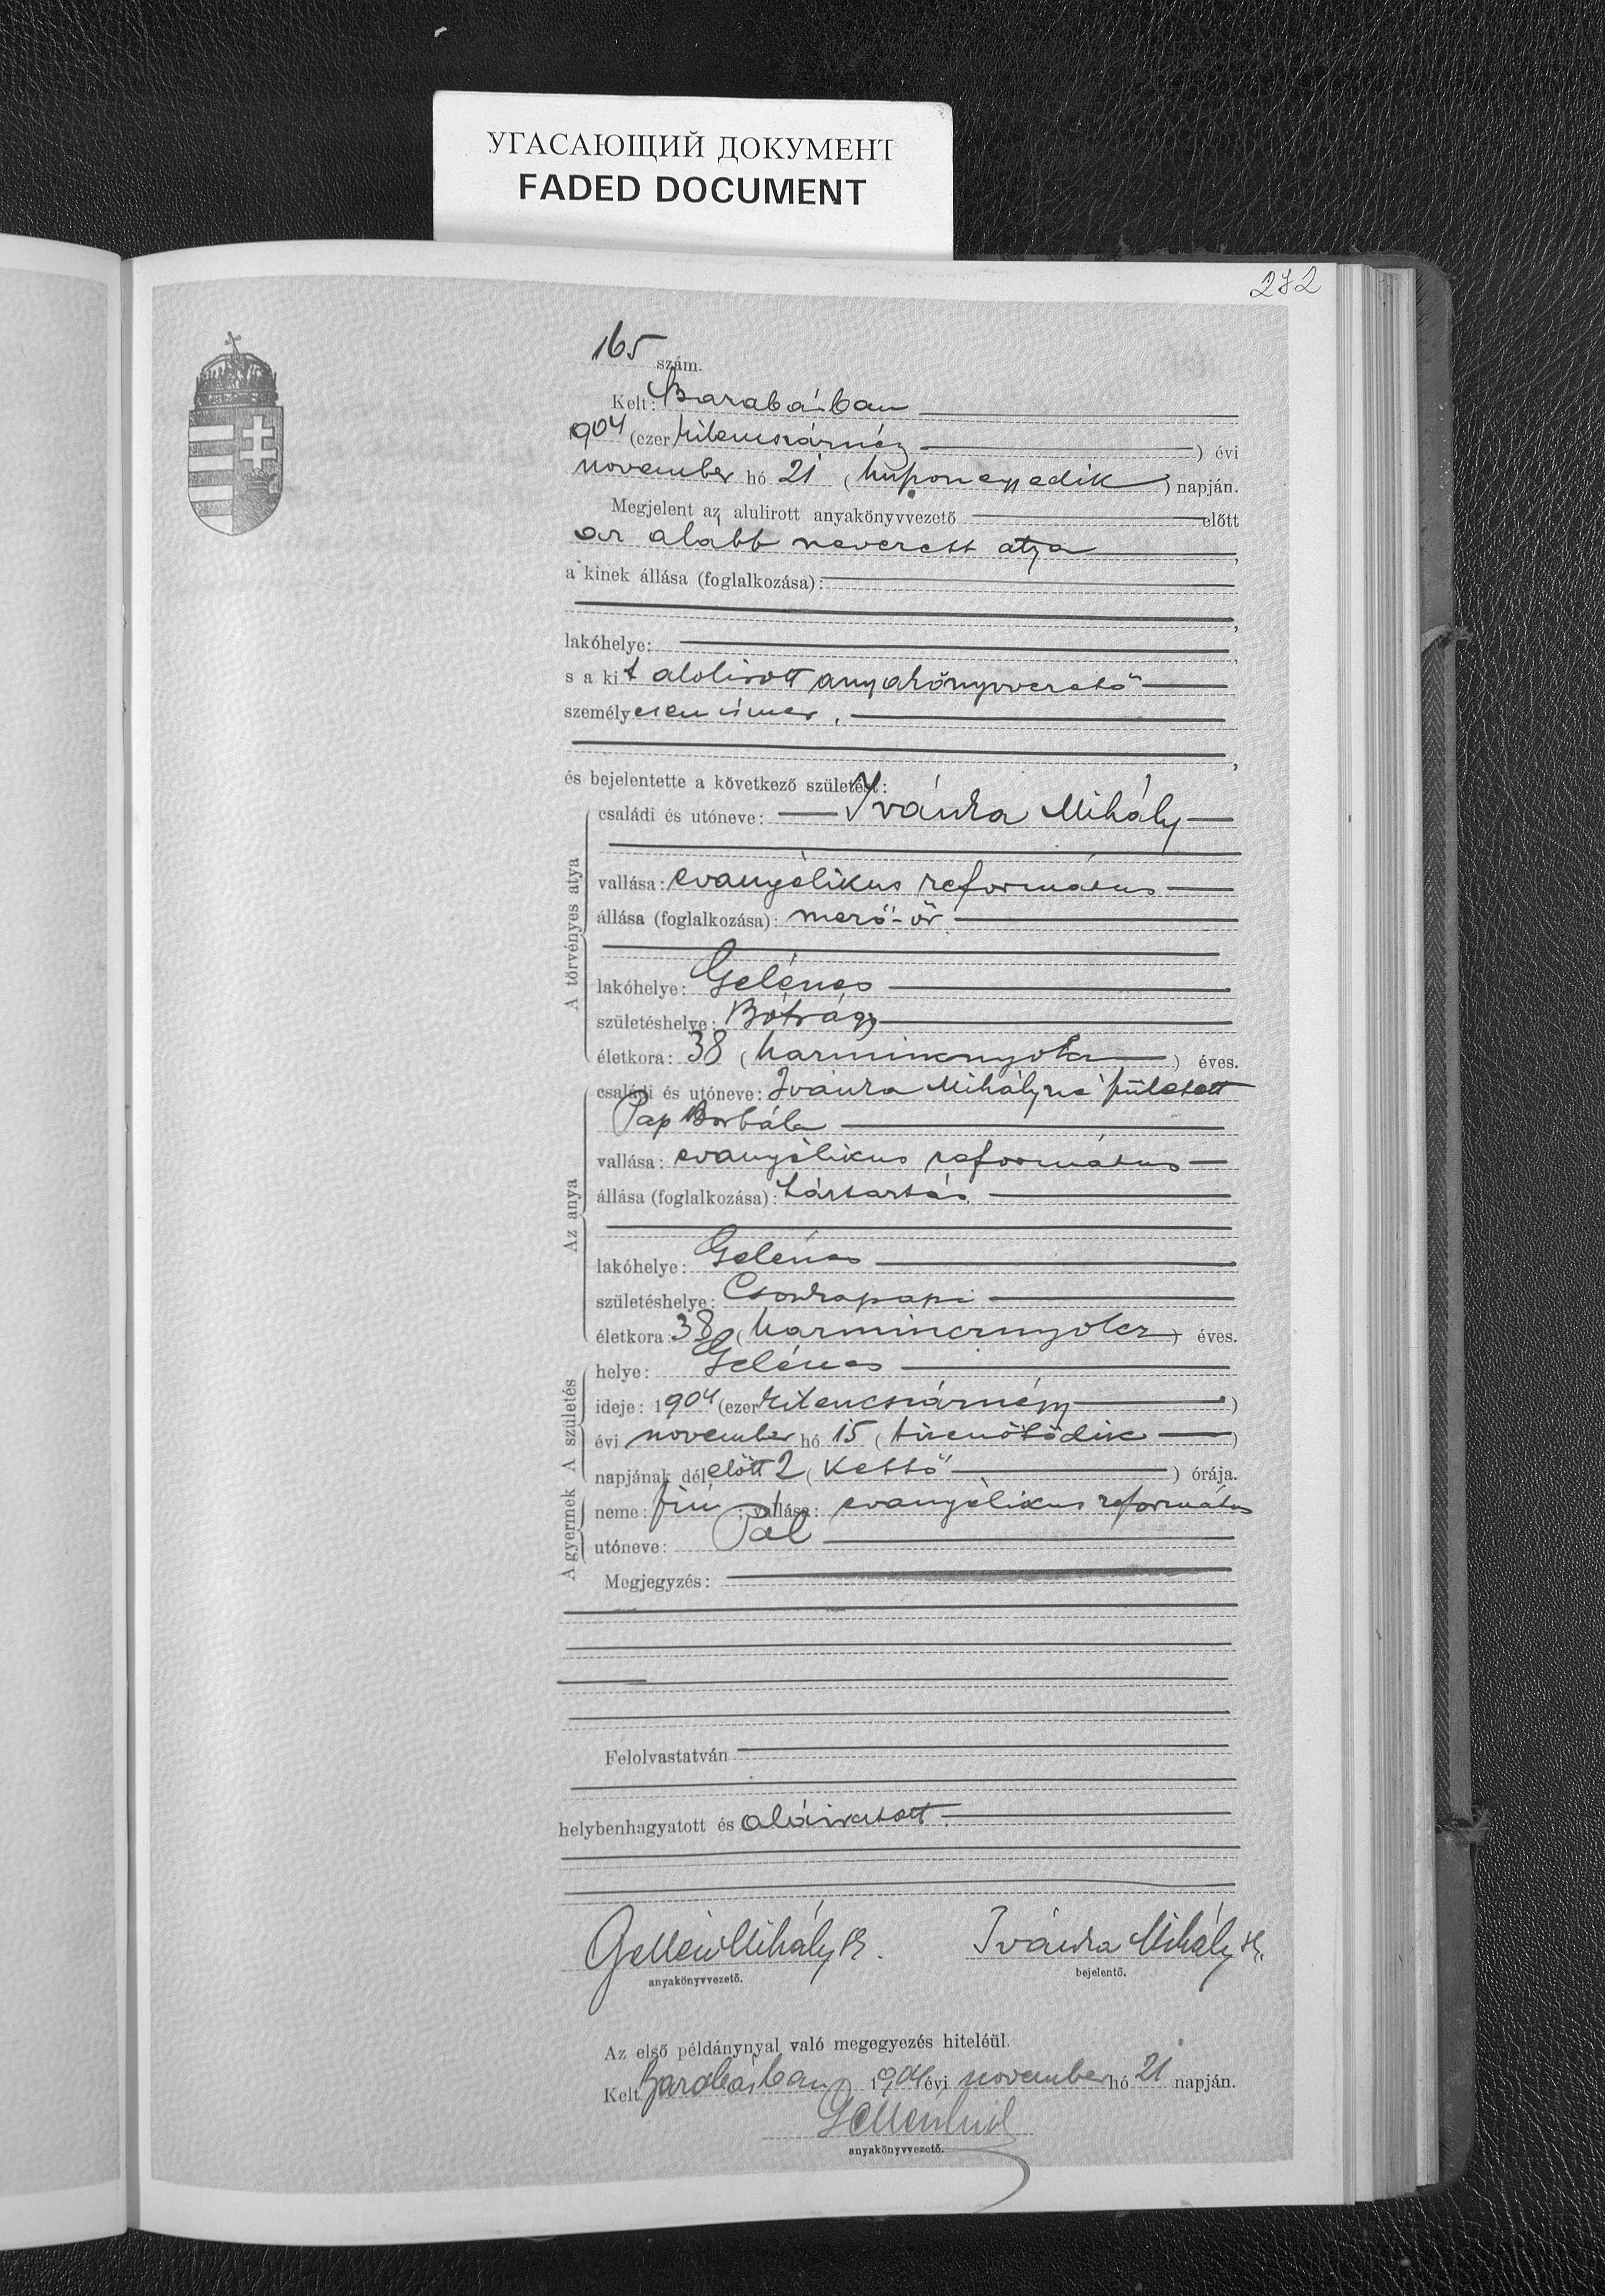 УГАСАЮЩИЙ ДОКУМЕНТ
FADED DOCUMENT
272
165 szám.
Kelt: Barabásban
1904 (ezer kilencszáznégy) évi
november hó 21 (huszonegyedik) napján.
Megjelent az alulirott anyakönyvvezető előtt
az alább nevezett atya,
a kinek állása (foglalkozása):
lakóhelye:
s a kit alolirott anyakönyvvezető
személyesen ismer,
és bejelentette a következő születést:
A törvényes atya
családi és utóneve: Ivánka Mihály
vallása: evangélikus református
állása (foglalkozása): mező-őr
lakóhelye: Gelénes
születéshelye: Bótrágy
életkora: 38 (harmincnyolcz) éves.
Az anya
családi és utóneve: Ivánka Mihályné született
Pap Borbála
vallása: evangélikus református
állása (foglalkozása): háztartás
lakóhelye: Gelénes
születéshelye: Csonkapapi
életkora: 38 (harmincznyolcz) éves.
A születés
helye: Gelénes
ideje: 1904 (ezer kilencszáznégy)
évi november hó 15 (tizenötödik)
napjának délelőtt 2 (kettő) órája.
A gyermek
neme: fiú; vallása: evangélikus református
utóneve: Pál
Megjegyzés:
Felolvastatván
helybenhagyatott és aláiratott.
Gellén Mihály sk. Ivánka Mihály sk.
anyakönyvvezető. bejelentő.
Az első példánynyal való megegyezés hiteléül.
Kelt Barabásban, 1904 évi november hó 21 napján.
anyakönyvvezető.